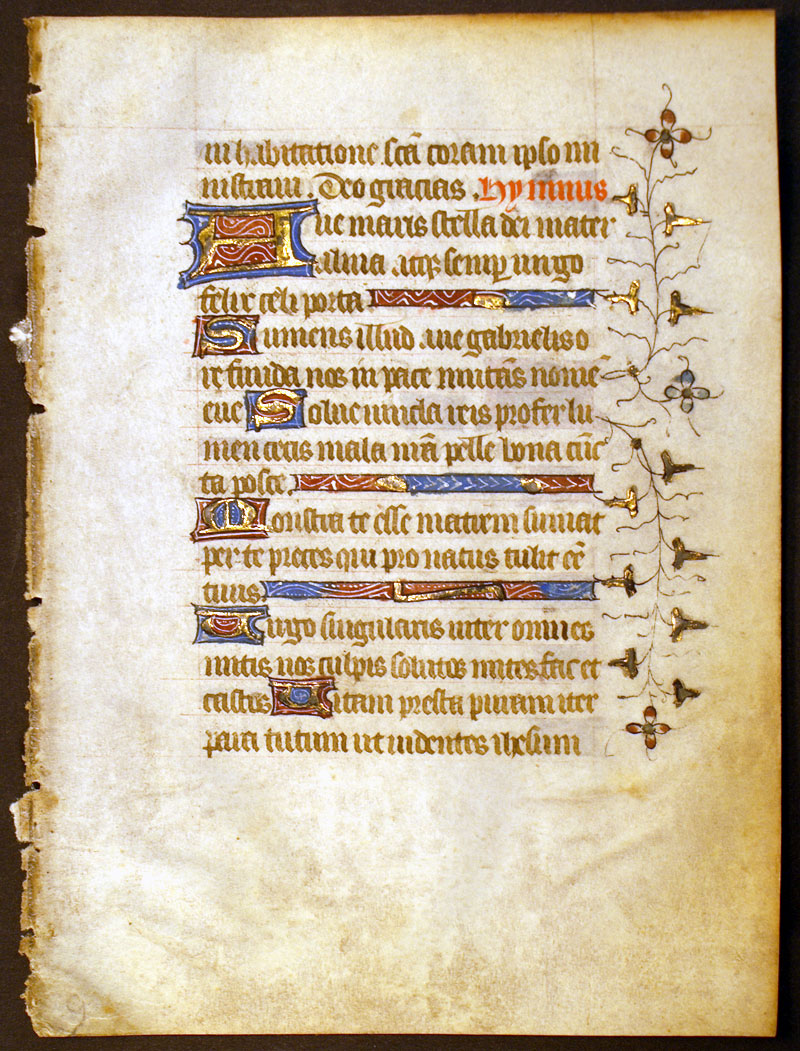 in habitatione scā coram ipso mi
nistraui. Deo gracias. Hymnus
Aue maris stella dei mater
alma atqꝫ semꝑ uirgo
felix celi porta
Sumens illud aue gabrielis o
re funda nos in pace mutās nomē
eue Solue uincla reis profer lu
men cecis mala nr̄a pelle bona cūc
ta posce.
Monstra te esse matrem sumat
per te preces qui pro natus tulit eē
tuus
Uirgo singularis inter omnes
mitis nos culpis solutos mites fac et
castos Uitam presta puram iter
para tutum ut uidentes ihesum